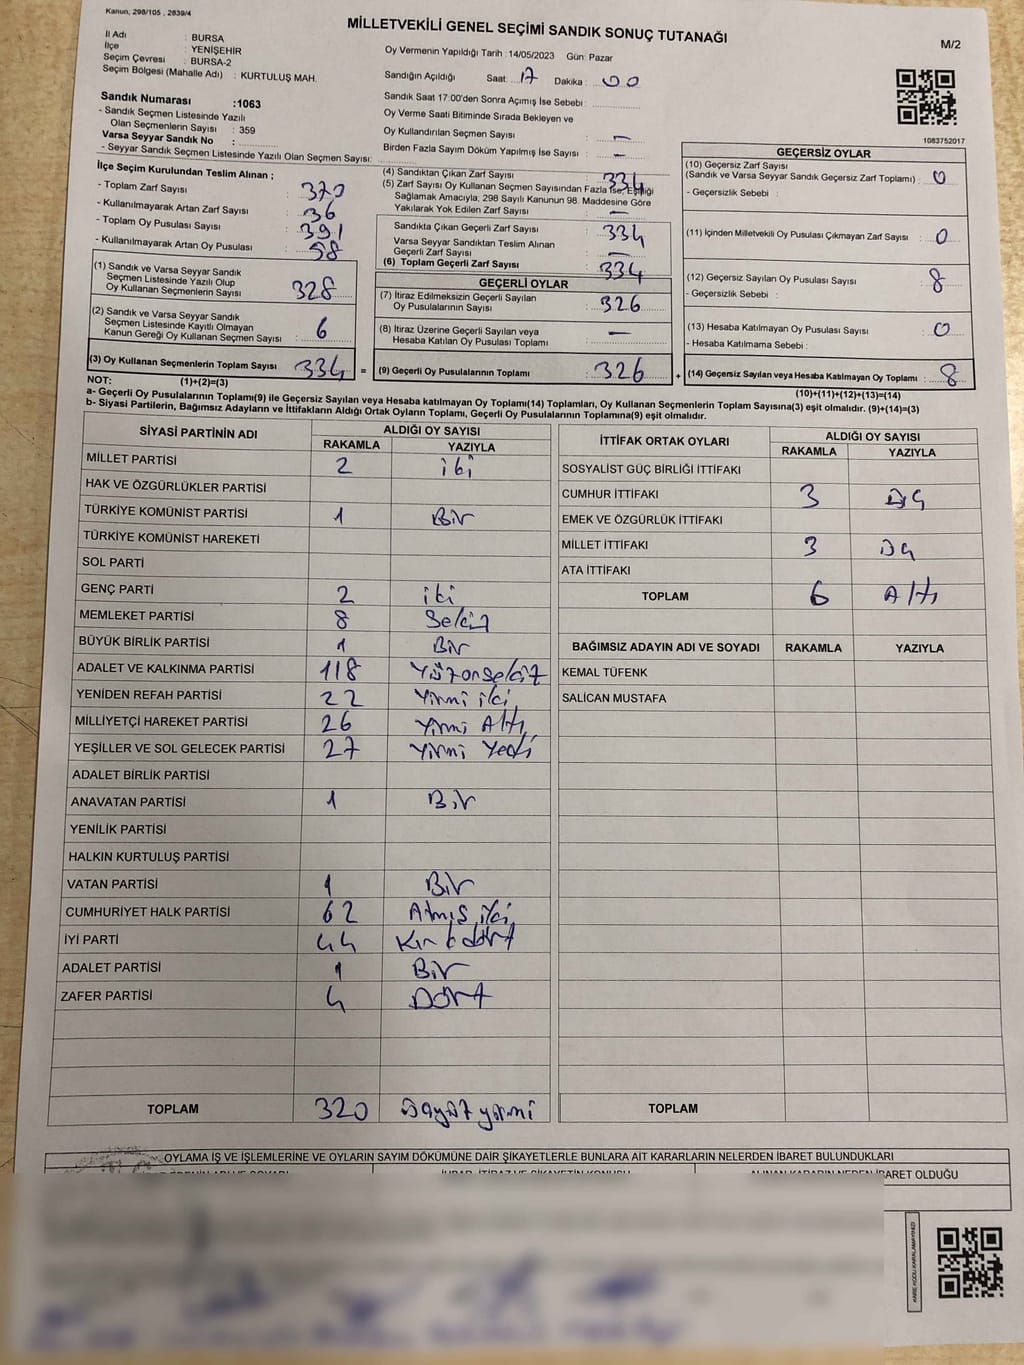 Kanun, 298/105 , 2839/4
MİLLETVEKİLİ GENEL SEÇİMİ SANDIK SONUÇ TUTANAĞI
M/2
İl Adı : BURSA
İlçe : YENİŞEHİR
Seçim Çevresi : BURSA-2
Seçim Bölgesi (Mahalle Adı) : KURTULUŞ MAH.
Sandık Numarası :1063
- Sandık Seçmen Listesinde Yazılı
Olan Seçmenlerin Sayısı : 359
Varsa Seyyar Sandık No :
- Seyyar Sandık Seçmen Listesinde Yazılı Olan Seçmen Sayısı:
Oy Vermenin Yapıldığı Tarih : 14/05/2023 Gün: Pazar
Sandığın Açıldığı Saat: 17 Dakika : 00
Sandık Saat 17:00'den Sonra Açımış İse Sebebi :
Oy Verme Saati Bitiminde Sırada Bekleyen ve
Oy Kullandırılan Seçmen Sayısı : –
Birden Fazla Sayım Döküm Yapılmış İse Sayısı : –
1083752017
İlçe Seçim Kurulundan Teslim Alınan ;
- Toplam Zarf Sayısı : 370
- Kullanılmayarak Artan Zarf Sayısı : 36
- Toplam Oy Pusulası Sayısı : 391
- Kullanılmayarak Artan Oy Pusulası : 58
(1) Sandık ve Varsa Seyyar Sandık
Seçmen Listesinde Yazılı Olup
Oy Kullanan Seçmenlerin Sayısı : 328
(2) Sandık ve Varsa Seyyar Sandık
Seçmen Listesinde Kayıtlı Olmayan
Kanun Gereği Oy Kullanan Seçmen Sayısı : 6
(3) Oy Kullanan Seçmenlerin Toplam Sayısı : 334 =
(4) Sandıktan Çıkan Zarf Sayısı : 334
(5) Zarf Sayısı Oy Kullanan Seçmen Sayısından Fazla İse, Eşitliği
Sağlamak Amacıyla, 298 Sayılı Kanunun 98. Maddesine Göre
Yakılarak Yok Edilen Zarf Sayısı : –
Sandıkta Çıkan Geçerli Zarf Sayısı : 334
Varsa Seyyar Sandıktan Teslim Alınan
Geçerli Zarf Sayısı : –
(6) Toplam Geçerli Zarf Sayısı : 334
GEÇERLİ OYLAR
(7) İtiraz Edilmeksizin Geçerli Sayılan
Oy Pusulalarının Sayısı : 326
(8) İtiraz Üzerine Geçerli Sayılan veya
Hesaba Katılan Oy Pusulası Toplamı : –
(9) Geçerli Oy Pusulalarının Toplamı : 326 +
GEÇERSİZ OYLAR
(10) Geçersiz Zarf Sayısı
(Sandık ve Varsa Seyyar Sandık Geçersiz Zarf Toplamı) : 0
- Geçersizlik Sebebi :
(11) İçinden Milletvekili Oy Pusulası Çıkmayan Zarf Sayısı : 0
(12) Geçersiz Sayılan Oy Pusulası Sayısı : 8
- Geçersizlik Sebebi :
(13) Hesaba Katılmayan Oy Pusulası Sayısı : 0
- Hesaba Katılmama Sebebi :
(14) Geçersiz Sayılan veya Hesaba Katılmayan Oy Toplamı : 8
NOT: (1)+(2)=(3) (10)+(11)+(12)+(13)=(14)
a- Geçerli Oy Pusulalarının Toplamı(9) ile Geçersiz Sayılan veya Hesaba katılmayan Oy Toplamı(14) Toplamları, Oy Kullanan Seçmenlerin Toplam Sayısına(3) eşit olmalıdır. (9)+(14)=(3)
b- Siyasi Partilerin, Bağımsız Adayların ve İttifakların Aldığı Ortak Oyların Toplamı, Geçerli Oy Pusulalarının Toplamına(9) eşit olmalıdır.
SİYASİ PARTİNİN ADI ALDIĞI OY SAYISI
RAKAMLA YAZIYLA
MİLLET PARTİSİ 2 iki
HAK VE ÖZGÜRLÜKLER PARTİSİ
TÜRKİYE KOMÜNİST PARTİSİ 1 Bir
TÜRKİYE KOMÜNİST HAREKETİ
SOL PARTİ
GENÇ PARTİ 2 iki
MEMLEKET PARTİSİ 8 Sekiz
BÜYÜK BİRLİK PARTİSİ 1 Bir
ADALET VE KALKINMA PARTİSİ 118 Yüzonsekiz
YENİDEN REFAH PARTİSİ 22 Yirmi iki
MİLLİYETÇİ HAREKET PARTİSİ 26 Yirmi Altı
YEŞİLLER VE SOL GELECEK PARTİSİ 27 Yirmi Yedi
ADALET BİRLİK PARTİSİ
ANAVATAN PARTİSİ 1 Bir
YENİLİK PARTİSİ
HALKIN KURTULUŞ PARTİSİ
VATAN PARTİSİ 1 Bir
CUMHURİYET HALK PARTİSİ 62 Atmış iki
İYİ PARTİ 44 Kırk dört
ADALET PARTİSİ 1 Bir
ZAFER PARTİSİ 4 Dört
TOPLAM 320 üçyüz yirmi
İTTİFAK ORTAK OYLARI ALDIĞI OY SAYISI
RAKAMLA YAZIYLA
SOSYALİST GÜÇ BİRLİĞİ İTTİFAKI
CUMHUR İTTİFAKI 3 Üç
EMEK VE ÖZGÜRLÜK İTTİFAKI
MİLLET İTTİFAKI 3 Üç
ATA İTTİFAKI
TOPLAM 6 Altı
BAĞIMSIZ ADAYIN ADI VE SOYADI RAKAMLA YAZIYLA
KEMAL TÜFENK
SALİCAN MUSTAFA
TOPLAM
OYLAMA İŞ VE İŞLEMLERİNE VE OYLARIN SAYIM DÖKÜMÜNE DAİR ŞİKAYETLERLE BUNLARA AİT KARARLARIN NELERDEN İBARET BULUNDUKLARI
ALINAN KARARIN NEDEN İBARET OLDUĞU
KARE KODU KARALAMAYINIZ!